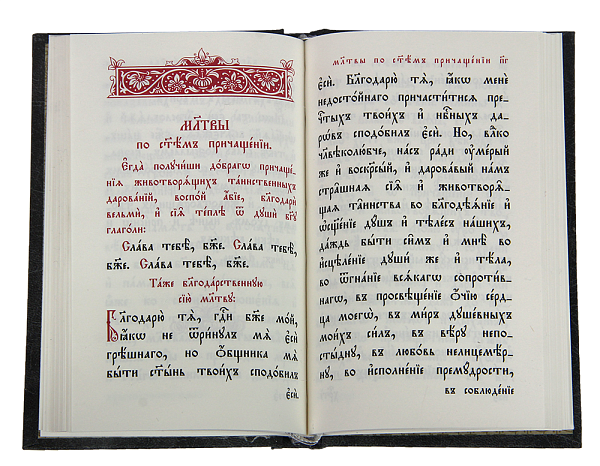 МЛ҃ТВЫ
по ст҃ѣмъ причащенїи.
Є҆гда̀ полꙋчи́ши до́брагѡ причаще_
нїѧ животворѧ́щихъ таи́нственныхъ
дарова́нїй, воспо́й а҆́бїе, благодарѝ
ве́льми, и҆ сїѧ̑ те́плѣ ѿ дꙋшѝ бг҃ꙋ
глаго́ли:
Сла́ва тебѣ̀, бж҃е. Сла́ва тебѣ̀,
бж҃е. Сла́ва тебѣ̀, бж҃е.
Та́же бл҃года́рственнꙋю
сїю̀ мл҃твꙋ:
Благодарю́ тѧ̀, гдⷭ҇и бж҃е мо́й,
ꙗ҆́кѡ не ѿри́нꙋлъ мѧ̀ є҆сѝ
грѣ́шнаго, но ѻ҆́бщника мѧ̀
бы́ти ст҃ы́нь твои́хъ сподо́билъ
є҆сѝ.
мл҃твы по ст҃ѣмъ причаще́нїи п҃г
є҆сѝ. Благодарю́ тѧ̀, ꙗ҆́кѡ менѐ
недосто́йнаго причасти́тисѧ пре_
чⷭ҇тыхъ твои́хъ и҆ нбⷭ҇ныхъ да_
рѡ́въ сподо́билъ є҆сѝ. Но, влⷣко
чл҃вѣколю́бче, на́съ ра́ди ᲂу҆ме́рый
же и҆ воскр҃сы́й, и҆ дарова́вый на́мъ
стра̑шнаѧ сїѧ̑ и҆ животворѧ́_
щаѧ та̑инства во бл҃годѣѧ́нїе и҆
ѡ҆сщ҃е́нїе дꙋ́шъ и҆ тѣле́съ на́шихъ,
да́ждь бы́ти си̑мъ и҆ мнѣ̀ во
и҆сцѣле́нїе дꙋшѝ же и҆ тѣ́ла,
во ѿгна́нїе всѧ́кагѡ сопроти́в_
нагѡ, въ просвѣще́нїе ѻ҆́чїю се́рд_
ца моегѡ̀, въ ми́ръ дꙋше́вныхъ
мои́хъ си́лъ, въ вѣ́рꙋ непо_
сты́днꙋ, въ любо́вь нелицемѣ́р_
нꙋ, во и҆сполне́нїе премꙋ́дрости,
въ соблюде́нїе